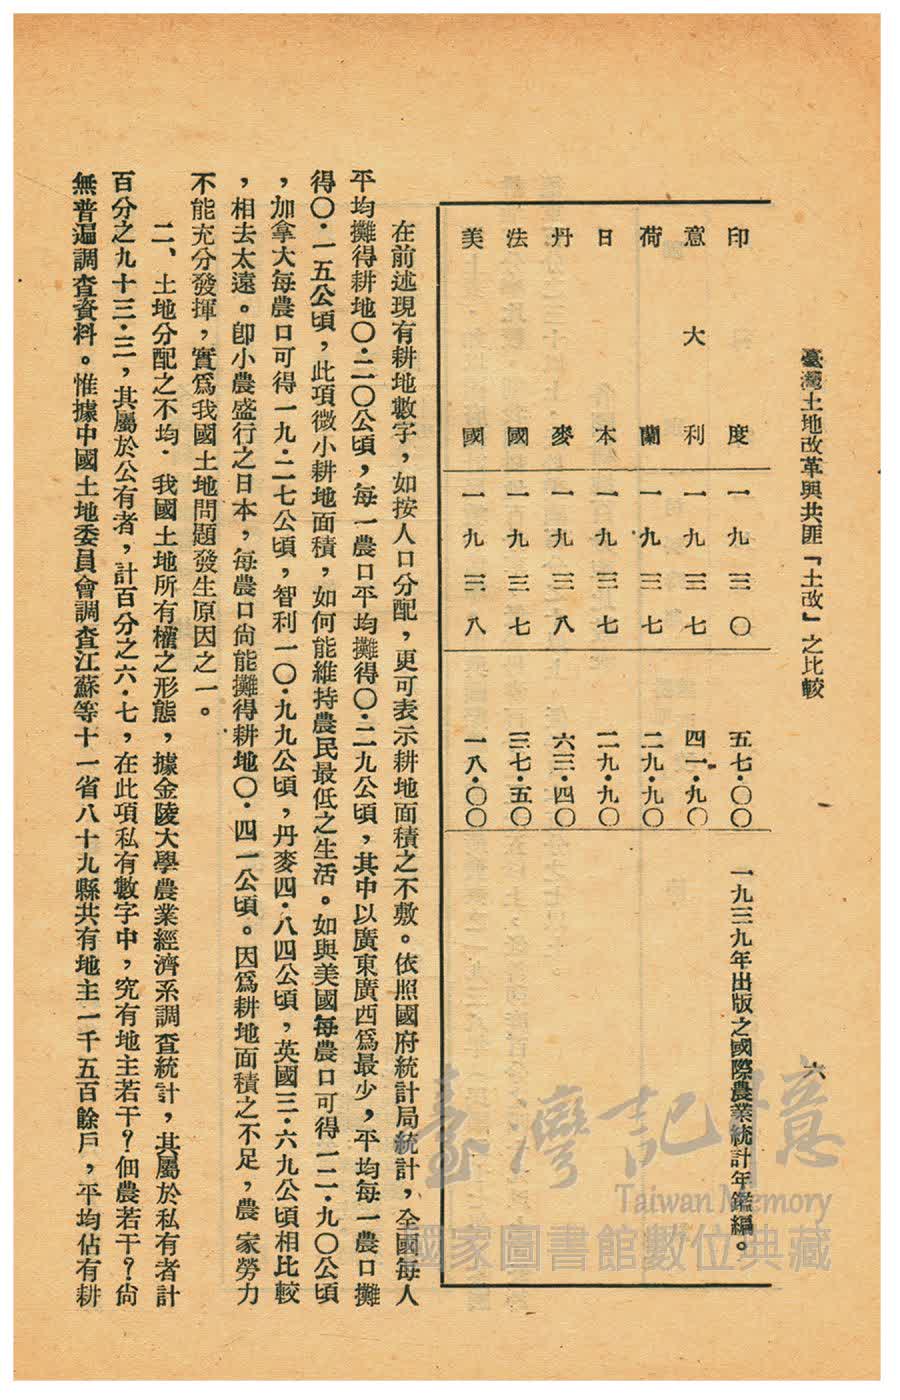 臺灣土地改革與共匪「土改」之比較
六
印度 一九三〇 五七·〇〇 一九三九年出版之國際農業統計年鑑編。
意大利 一九三七 四一·九〇
荷蘭 一九三七 二九·九〇
日本 一九三七 二九·九〇
丹麥 一九三八 六三·四〇
法國 一九三七 三七·五〇
美國 一九三八 一八·〇〇
在前述現有耕地數字，如按人口分配，更可表示耕地面積之不敷。依照國府統計局統計，全國每人
平均攤得耕地〇·二〇公頃，每一農口平均攤得〇·二九公頃，其中以廣東廣西爲最少，平均每一農口攤
得〇·一五公頃，此項微小耕地面積，如何能維持農民最低之生活。如與美國每農口可得一二·九〇公頃
，加拿大每農口可得一九·二七公頃，智利一〇·九九公頃，丹麥四·八四公頃，英國三·六九公頃相比較
，相去太遠。卽小農盛行之日本，每農口尙能攤得耕地〇·四一公頃。因爲耕地面積之不足，農家勞力
不能充分發揮，實爲我國土地問題發生原因之一。
二、土地分配之不均· 我國土地所有權之形態，據金陵大學農業經濟系調查統計，其屬於私有者計
百分之九十三·三，其屬於公有者，計百分之六·七，在此項私有數字中，究有地主若干？佃農若干？尙
無普遍調查資料。惟據中國土地委員會調查江蘇等十一省八十九縣共有地主一千五百餘戶，平均佔有耕
臺灣記憶
Taiwan Memory
國家圖書館數位典藏